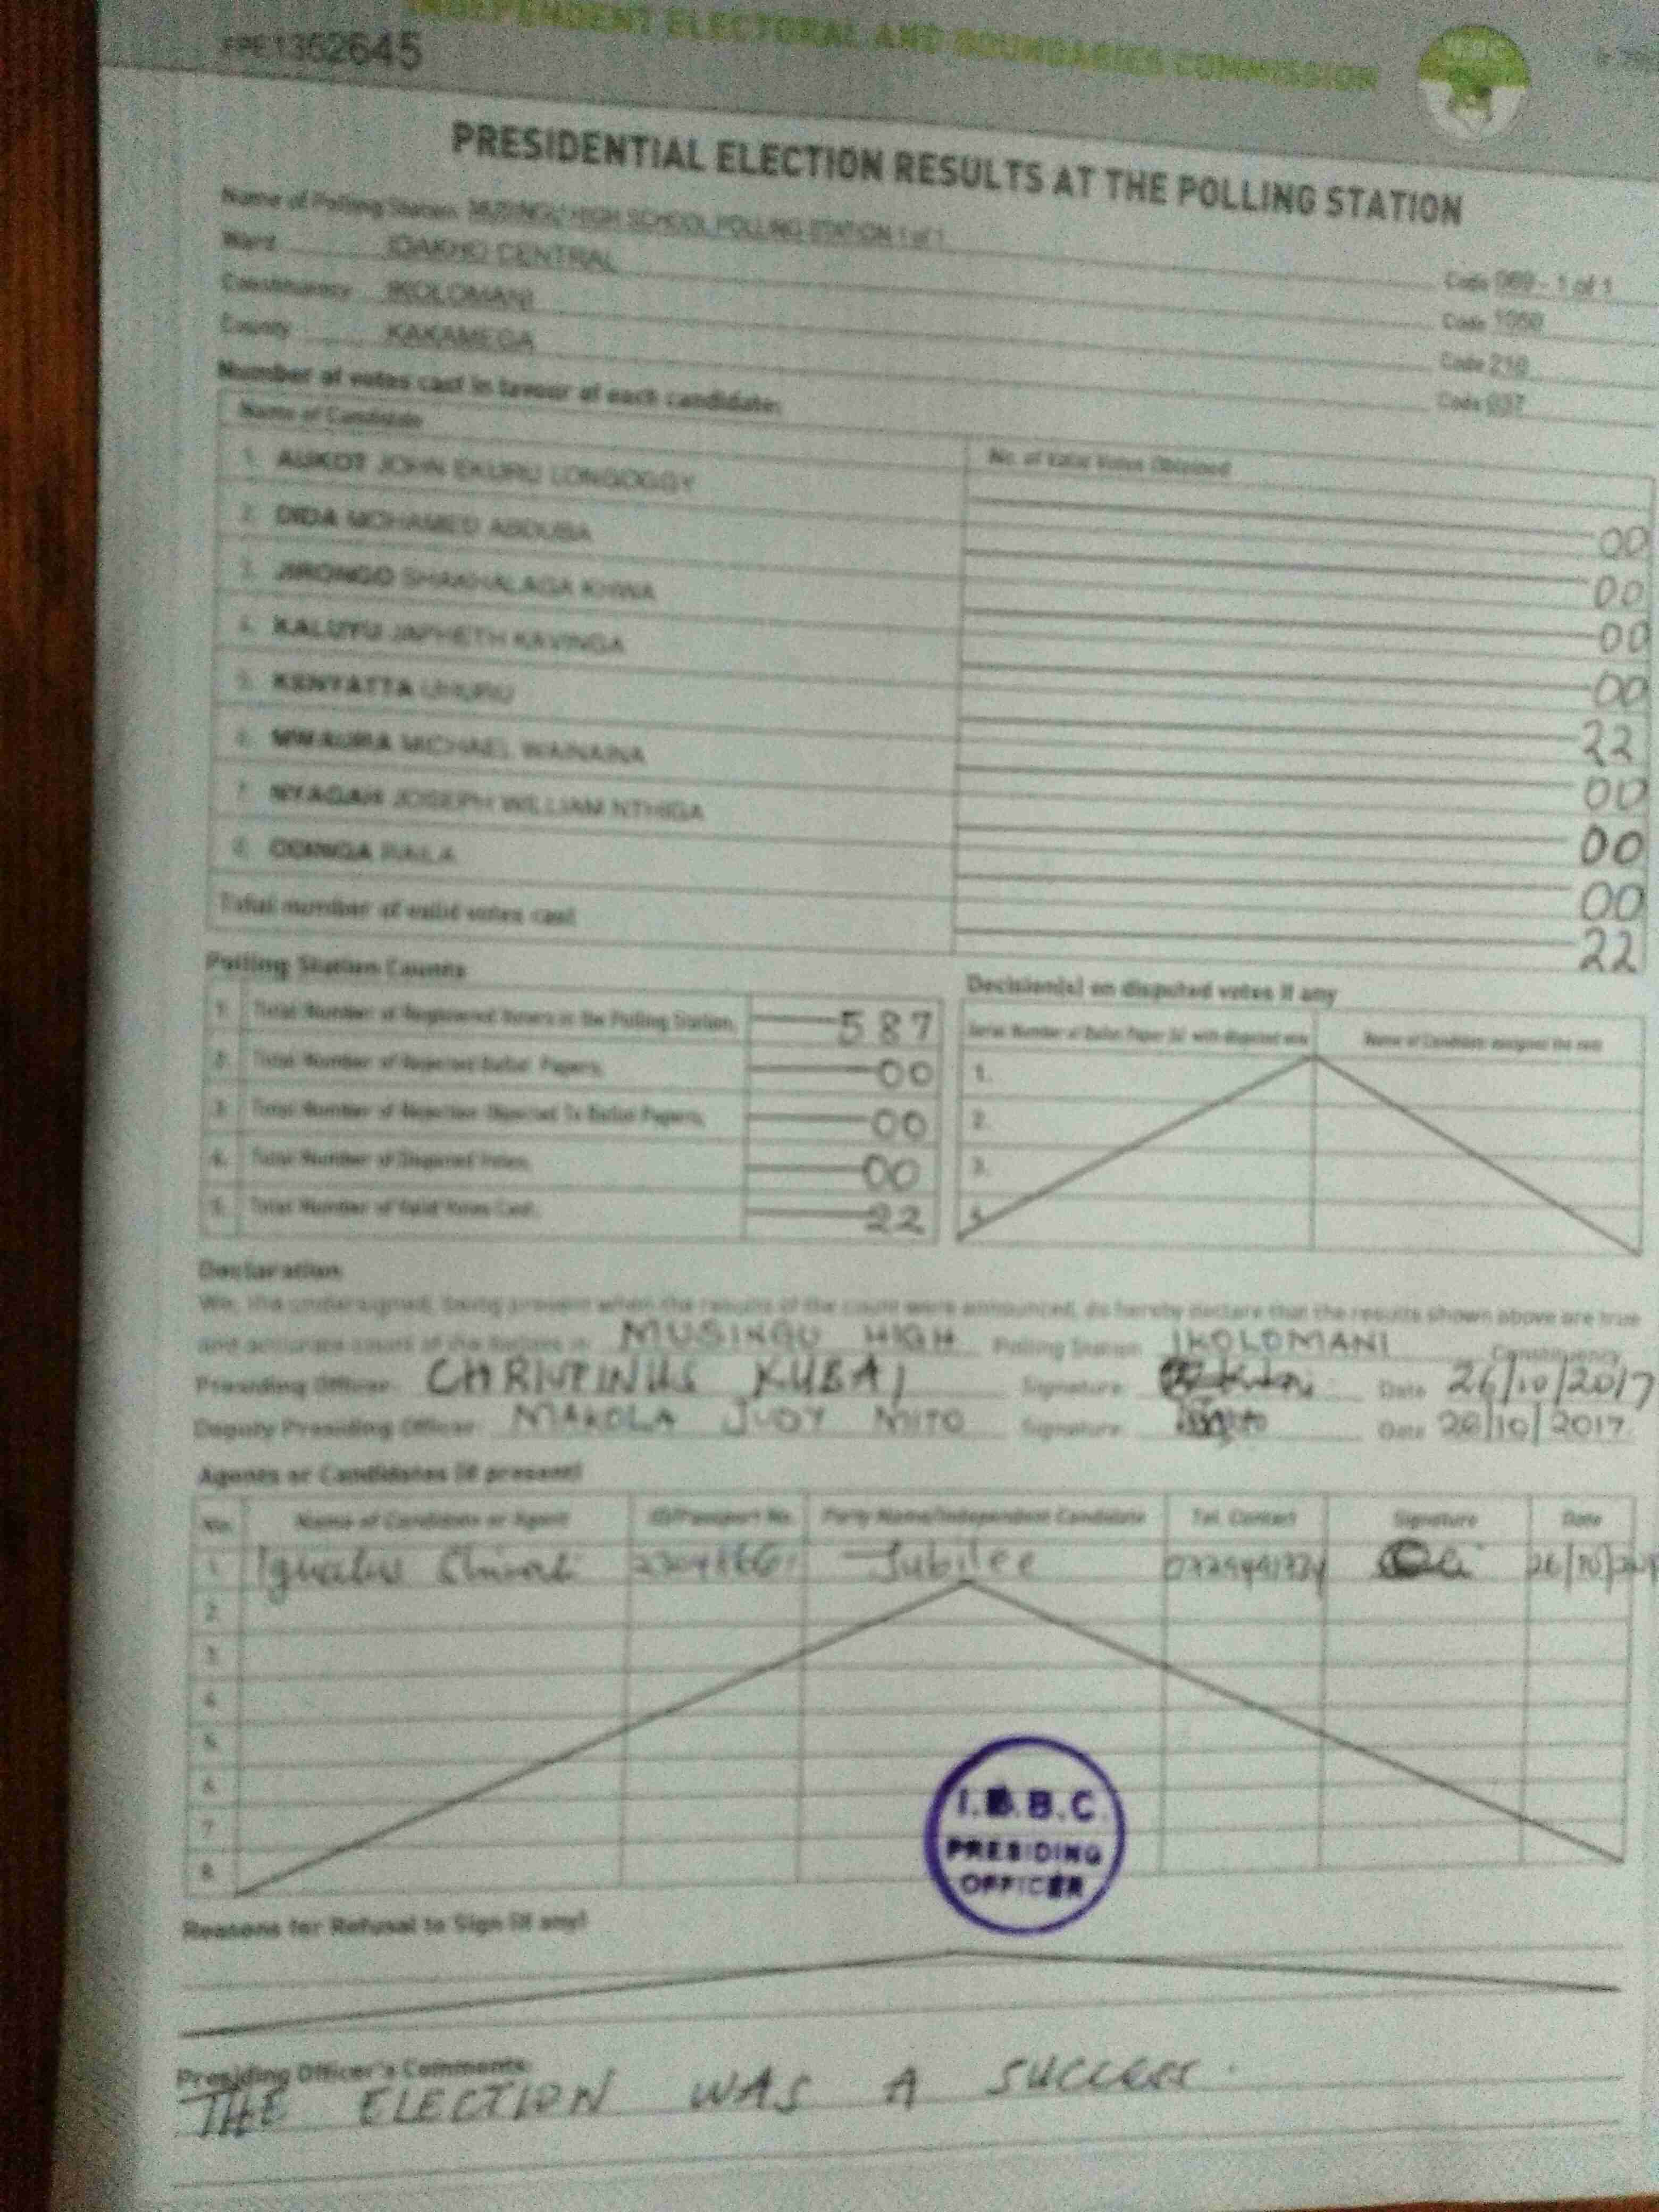 INDEPENDENT ELECTORAL AND BOUNDARIES COMMISSION
FPE1352645
PRESIDENTIAL ELECTION RESULTS AT THE POLLING STATION
Name of Polling Station MUSINGU HIGH SCHOOL POLLING STATION 1 of 1 Code 069 - 1 of 1
Ward IDAKHO CENTRAL Code
Constituency IKOLOMANI Code 210
County KAKAMEGA Code 037
Number of votes cast in favour of each candidate:
Name of Candidate No. of Valid Votes Obtained
1. AUKOT JOHN EKURU LONGOGGY 00
2. DIDA MOHAMED ABDUBA 00
3. JIRONGO SHAKHALAGA KHWA 00
4. KALUYU JAPHETH KAVINGA 00
5. KENYATTA UHURU 22
6. MWAURA MICHAEL WAINAINA 00
7. NYAGAH JOSEPH WILLIAM NTHIGA 00
8. ODINGA RAILA 00
Total number of valid votes cast 22
Polling Station Counts
1. Total Number of Registered Voters in the Polling Station, 587
2. Total Number of Rejected Ballot Papers, 00
3. Total Number of Rejection Objected To Ballot Papers, 00
4. Total Number of Disputed Votes, 00
5. Total Number of Valid Votes Cast, 22
Decision(s) on disputed votes if any
Serial Number of Ballot Paper (s) with disputed vote Name of Candidate assigned the vote
1.
2.
3.
4.
Declaration
We, the undersigned, being present when the results of the count were announced, do hereby declare that the results shown above are true
and accurate count of the ballots in MUSINGU HIGH Polling Station IKOLOMANI Constituency
Presiding Officer: KUBAI Signature: Date 26/10/2017
Deputy Presiding Officer: MAKOLA JUDY MITO Signature: Date 26/10/2017
Agents or Candidates (if present)
No. Name of Candidate or Agent ID/Passport No. Party Name/Independent Candidate Tel. Contact Signature Date
1 Jubilee
2
3
4
5
6
7
8
I.E.B.C.
PRESIDING
OFFICER
Reasons for Refusal to Sign (if any)
Presiding Officer's Comments:
THE ELECTION WAS A SUCCESS.